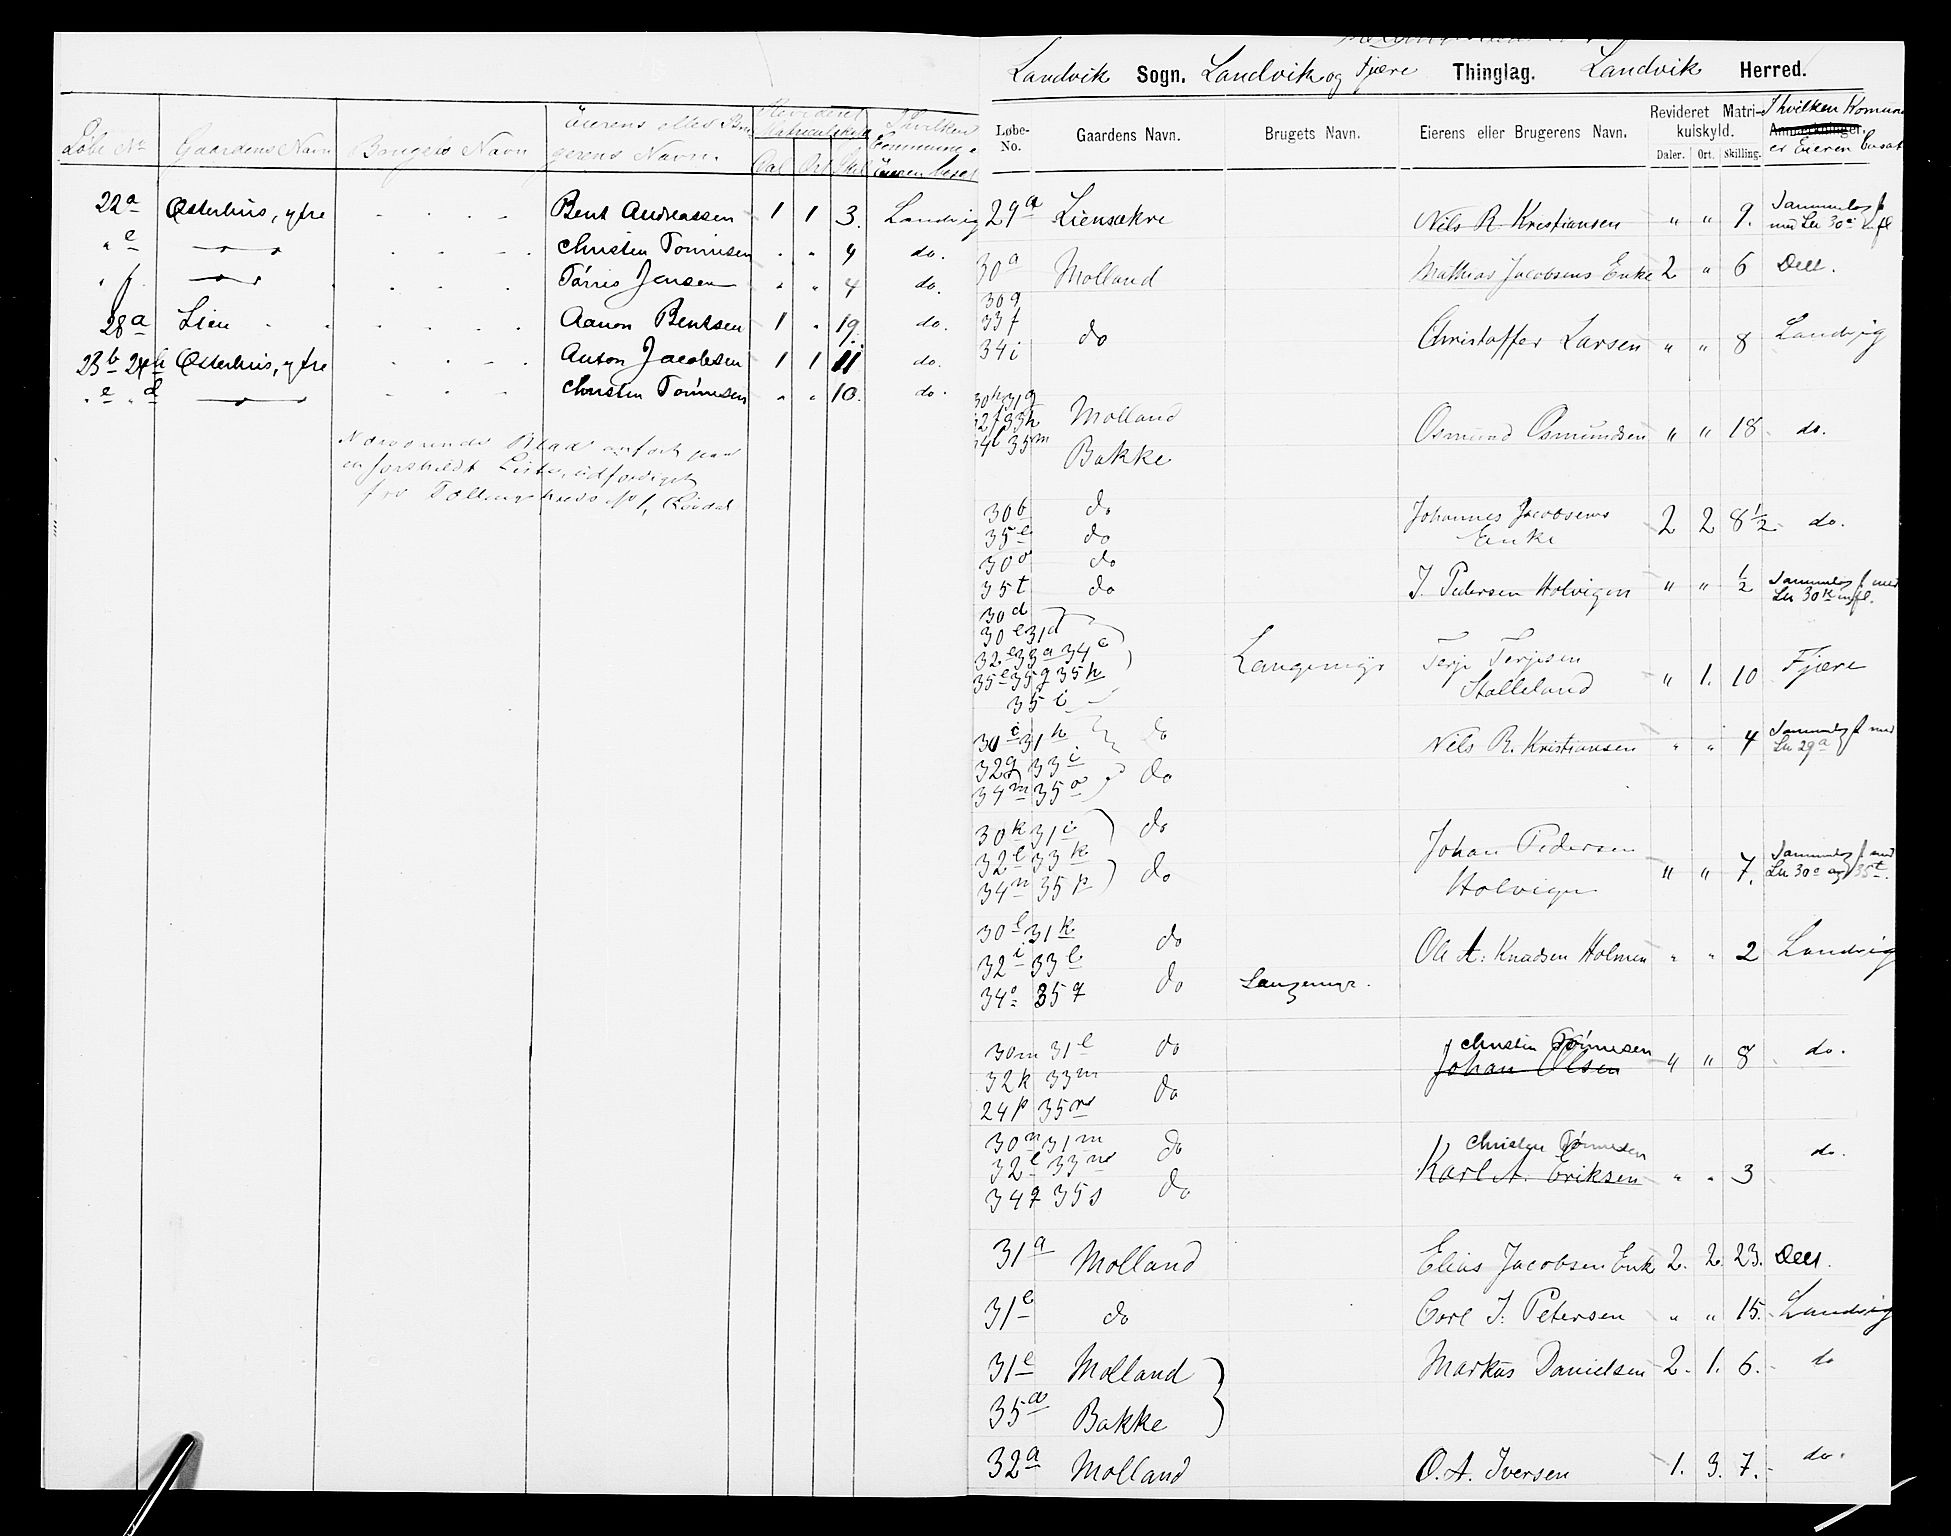 Løbe No Gaardens Navn Brugets Navn Eierens eller Brugerens Navn. Revideret Matriculskyld Dal Ort Skil I hvilken Commune er Eieren bosat
22a Østerhus, ytre Bent Andreassen 1 1 3. Landvig
" e Christen Tønnesen " " 4 do.
" f Tørris Jensen " " 4 do.
28a Lien Aanon Bentsen 1 " 19. do.
23b 24b Østerhus, ytre Anton Jacobsen 1 1 11 do.
" e " d Christen Tønnesen " " 10. do.
Nærværende Blad anført paa
en særskildt Liste, udfærdiget
for Tællingskreds No 1,
Landvik Sogn. Landvik og Fjære Thinglag. Landvik Herred.
Løbe-No. Gaardens Navn. Brugets Navn. Eierens eller Brugerens Navn. Revideret Matrikulskyld. Daler. Ort. Skilling. Anmærkninger. I hvilken Komune er Eieren bosat
29a Liensækre Nils R. Kristiansen " " 9. Sammenlagt med Lnr 30i mfl
30a Molland Mathias Jacobsens Enke 2 " 6 Død.
30g
33f do Christoffer Larsen " " 8 Landvig
34i
30h 31g
32f 33h Molland Osmund Osmundsen " " 18 do.
34l 35m Bakke
30b do Johannes Jacobsens 2 2 8 1/2 do.
35e do Enke
30o do
35t do J. Pedersen Holvigen " " 1/2 Sammenlagt med Lnr 30k mfl.
30d
30e 31d
32e 33a 34c Langemyr Terje Terjesen
35e 35g 35h Stalleland " 1. 10 Fjære
35i
30i 31h do Nils R. Kristiansen " " 4 Sammenlagt med Lnr 29a
32g 33i
34m 35o do
30k 31i do
32l 33k Johan Pedersen " " 7. Sammenlagt med Lnr 30o og 35t.
34n 35p do Holvigen
30l 31k do
32i 33l Ole A: Knudsen Holmen " " 2 Landvig
34o 35q do Langemyr.
30m 31l do Christen Tønnesen
32k 33m Johan Olsen " " 8 do.
24p 35r do
30n 31m do Christen Tønnesen do.
32l 33n Karl A. Eriksen " " 3
34q 35s do
31a Molland Elias Jacobsen Enk 2. 2. 23. Død.
31b do Carl J. Petersen " " 15. Landvig
31e Molland Markus Danielsen 2. 1. 6. do
35a Bakke
32a Molland O. A. Iversen 1. 3. 7. do.